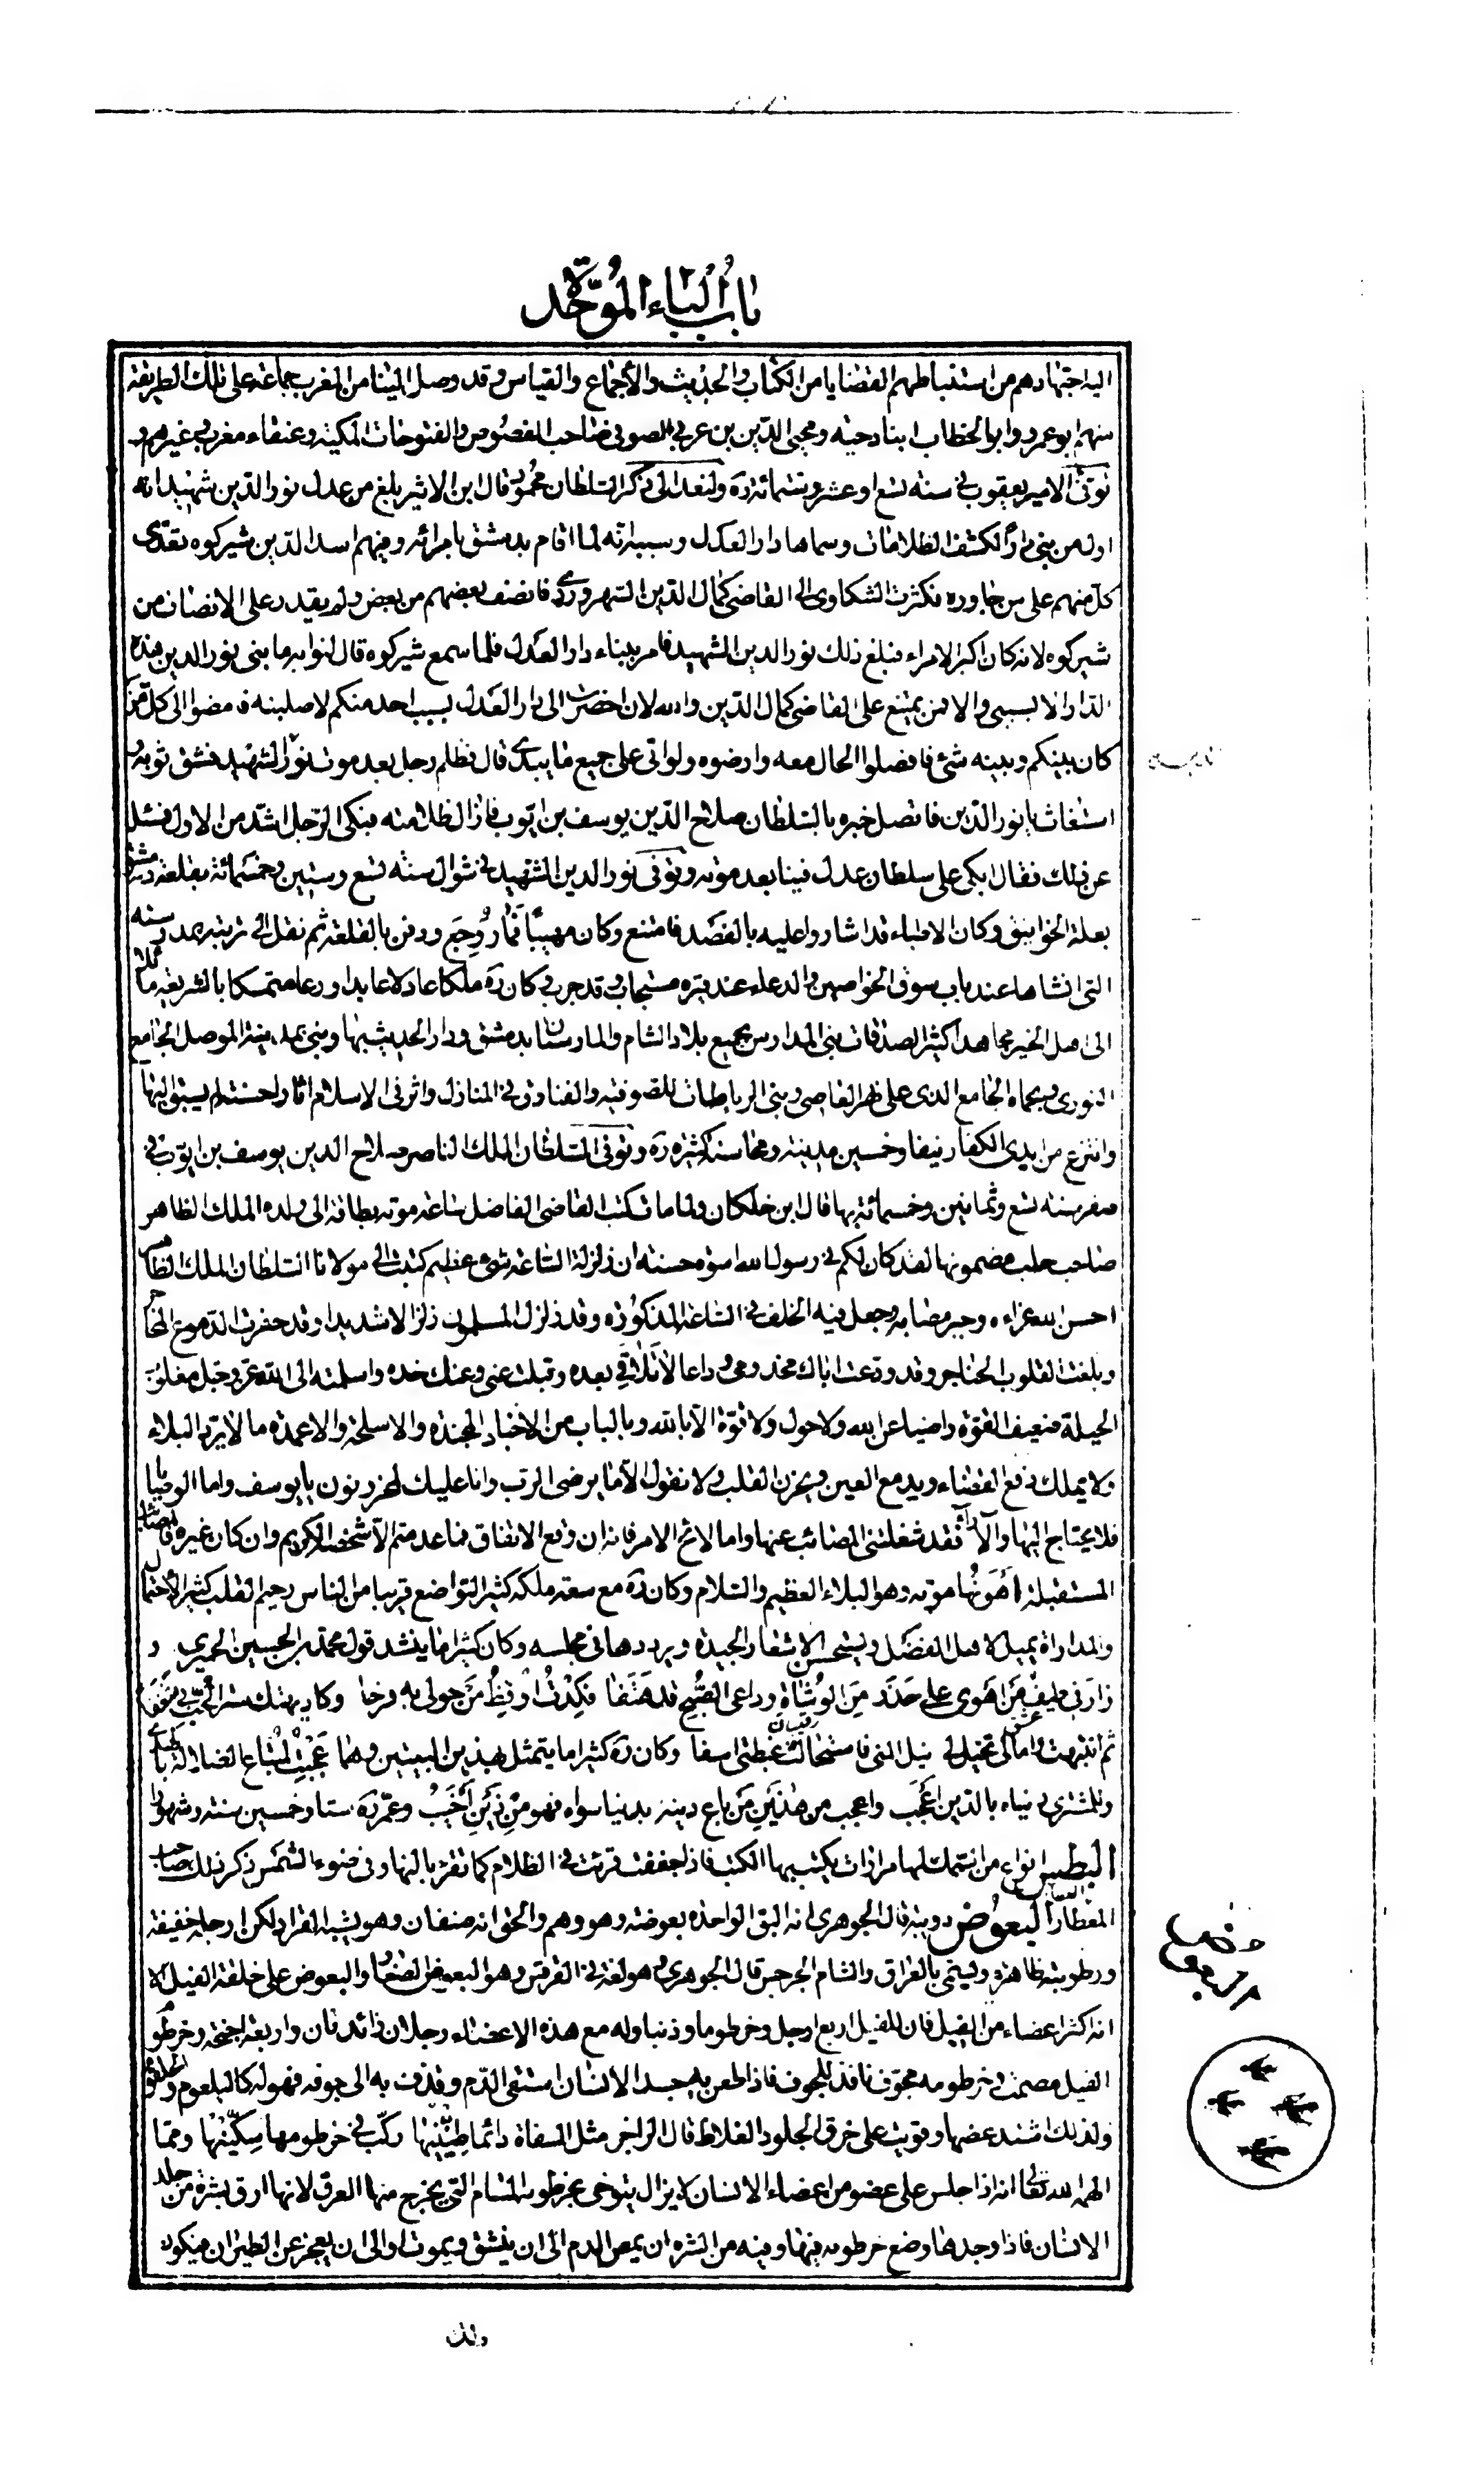 باب الباء الموحدة
اليه اجتهادهم من استنباطهم القضايا من الكتاب والحديث والأجماع والقياس وقد وصل الينا من المغرب جماعة على تلك الطريقة
منهم ابو عمرو وابو الخطاب ابنا دحية ومحيى الدين بن عربى الصوفى صاحب الفصوص والفتوحات المكية وعنقاء مغرب وغيرهم و
توفى الامير يعقوب فى سنة تسع او عشر وستمائة ره ولنعد الى ذكر السلطان محمود قال ابن الاثير بلغ من عدل نور الدين شهيد انه
اول من بنى دارا لكشف الظلامات وسماها دار العدل وسببه انه لما اقام بدمشق بامرائه وفيهم اسد الدين شيركوه تعدى
كل منهم على من جاوره فكثرت الشكاوى الى القاضى كمال الدين السهروردى فانصف بعضهم من بعض ولم يقدر على الانصاف من
شيركوه لانه كان اكبر الامراء فبلغ ذلك نور الدين الشهيد فامر ببناء دار العدل فلما سمع شيركوه قال لنوابه ما بنى نور الدين هذه
الدار الا بسببى والا فمن يمتنع على القاضى كمال الدين والله لان احضرت الى دار العدل بسبب احد منكم لاصلبنه فامضوا الى كل من
كان بينكم وبينه شئ فافصلوا الحال معه وارضوه ولو اتى على جميع ما بيدى قال فظلم رجل بعد موت نور الشهيد فشق ثوبه و
استغاث يا نور الدين فاتصل خبره بالسلطان صلاح الدين يوسف بن ايوب فازال ظلامته فبكى الرجل اشد من الاول فسئل
عن ذلك فقال ابكى على سلطان عدل فينا بعد موته وتوفى نور الدين الشهيد فى شوال سنة تسع وستين وخمسمائة بقلعة دمشق
بعلة الخوانيق وكان الاطباء قد اشاروا عليه بالفصد فامتنع وكان مهيبا فما روجع ودفن بالقلعة ثم نقل الى تربته بمدرسته
التى انشاها عند باب سوق الخواصين والدعاء عند قبره مستجاب وقد جرب وكان ره ملكا عادلا عابدا ورعا متمسكا بالشريعة مائلا
الى اهل الخير مجاهدا كثير الصدقات بنى المدارس بجميع بلاد الشام والمارستان بدمشق ودار الحديث بها وبنى بمدينة الموصل الجامع
النورى وبحماه الجامع الذى على نهر العاصى وبنى الرباطات للصوفية والفنادق فى المنازل واثر فى الاسلام اثارا حسنة لم يسبق اليها
وانتزع من ايدى الكفار نيفا وخمسين مدينة ومحاسنه كثيرة ره وتوفى السلطان الملك الناصر صلاح الدين يوسف بن ايوب فى
صفر سنة تسع وثمانين وخمسمائة بها قال ابن خلكان ولما مات كتب القاضى الفاضل ساعة موته بطاقة الى ولده الملك الظاهر
صاحب حلب مضمونها لقد كان لكم فى رسول الله اسوة حسنة ان زلزلة الساعة شئ عظيم كتبت الى مولانا السلطان الملك الظاهر
احسن الله عزاءه وجبر مصابه وجعل فيه الخلف فى الساعة المذكورة وقد زلزل المسلمون زلزالا شديدا وقد حفرت الدموع المحاجر
وبلغت القلوب الحناجر وقد ودعت اباك مخدومى وداعا لا تلاقى بعده وقبلت عنى وعنك خده واسلمته الى الله عز وجل مغلوب
الحيلة ضعيف القوة راضيا عن الله ولا حول ولا قوة الا بالله وبالباب من الاجناد المجندة والاسلحة والاعمدة ما لا يرد البلاء
ولا يملك دفع القضاء ويدمع العين ويحزن القلب ولا نقول الا ما يرضى الرب وانا عليك لمحزونون يا يوسف واما الوصايا
فلا يحتاج اليها والآراء فقد شغلتنى المصائب عنها واما لائح الامر فانه ان وقع الاتفاق فما عدمتم الا شخصه الكريم وان كان غيره فالمصائب
المستقبلة اهونها موته وهو البلاء العظيم والسلام وكان ره مع سعة ملكه كثير التواضع قريبا من الناس رحيم القلب كثير الاحتمال
والمداراة يميل لاهل الفضل ويستحسن الاشعار الجيدة ويرددها فى مجلسه وكان كثيرا ما ينشد قول محمد بن الحسين الحميرى و
زارنى طيف من اهوى على حذر من الوشاة وداعى الصبح قد هتفا فكدت اوقظ من حولى به فرحا وكاد يهتك ستر الحب بى شغفا
ثم انتبهت وآمالى تخيل لى نيل المنى فاستحالت غبطتى اسفا وكان ره كثيرا ما يتمثل بهذين البيتين وهما عجبت لمبتاع الضلالة بالهدى
وللمشترى دنياه بالدين اعجب واعجب من هذين من باع دينه بدنيا سواه فهو من ذين اخيب وعمره ستا وخمسين سنة وشهورا
البطس انواع من السمك لها مرارات يكتب بها الكتب فاذا جففت قرئت فى الظلام كما تقرء بالنهار وفى ضوء الشمس ذكر ذلك صاحب
العطار البعوض دويبة قال الجوهرى انه البق الواحدة بعوضة وهو وهم والحق انه صنفان وهو يشبه القراد لكن ارجله خفيفة
ورطوبته ظاهرة ويسمى بالعراق والشام الجرجس قال الجوهرى وهو لغة فى القرقس وهو البعوض الصغار والبعوض على خلقة الفيل الا
انه اكثر اعضاء من الفيل فان للفيل اربع ارجل وخرطوما وذنبا وله مع هذه الاعضاء رجلان زائدتان واربعة اجنحة وخرطوم
الفيل مصمت وخرطومه مجوف نافذ للجوف فاذا طعن به جسد الانسان استقى الدم وقذف به الى جوفه فهو له كالبلعوم والحلقوم
ولذلك اشتد عضها وقويت على خرق الجلود الغلاظ قال الراجز مثل السفاة دائما طنينها ركب فى خرطومها سكينها ومما
الهمه الله تعالى انه اذا جلس على عضو من اعضاء الانسان لا يزال يتوخى بخرطومه المسام التى يخرج منها العرق لانها ارق بشرة من جلد
الانسان فاذا وجدها وضع خرطومه فيها وفيه من الشره ان يمص الدم الى ان ينشق ويموت او الى ان يعجز عن الطيران فيكون